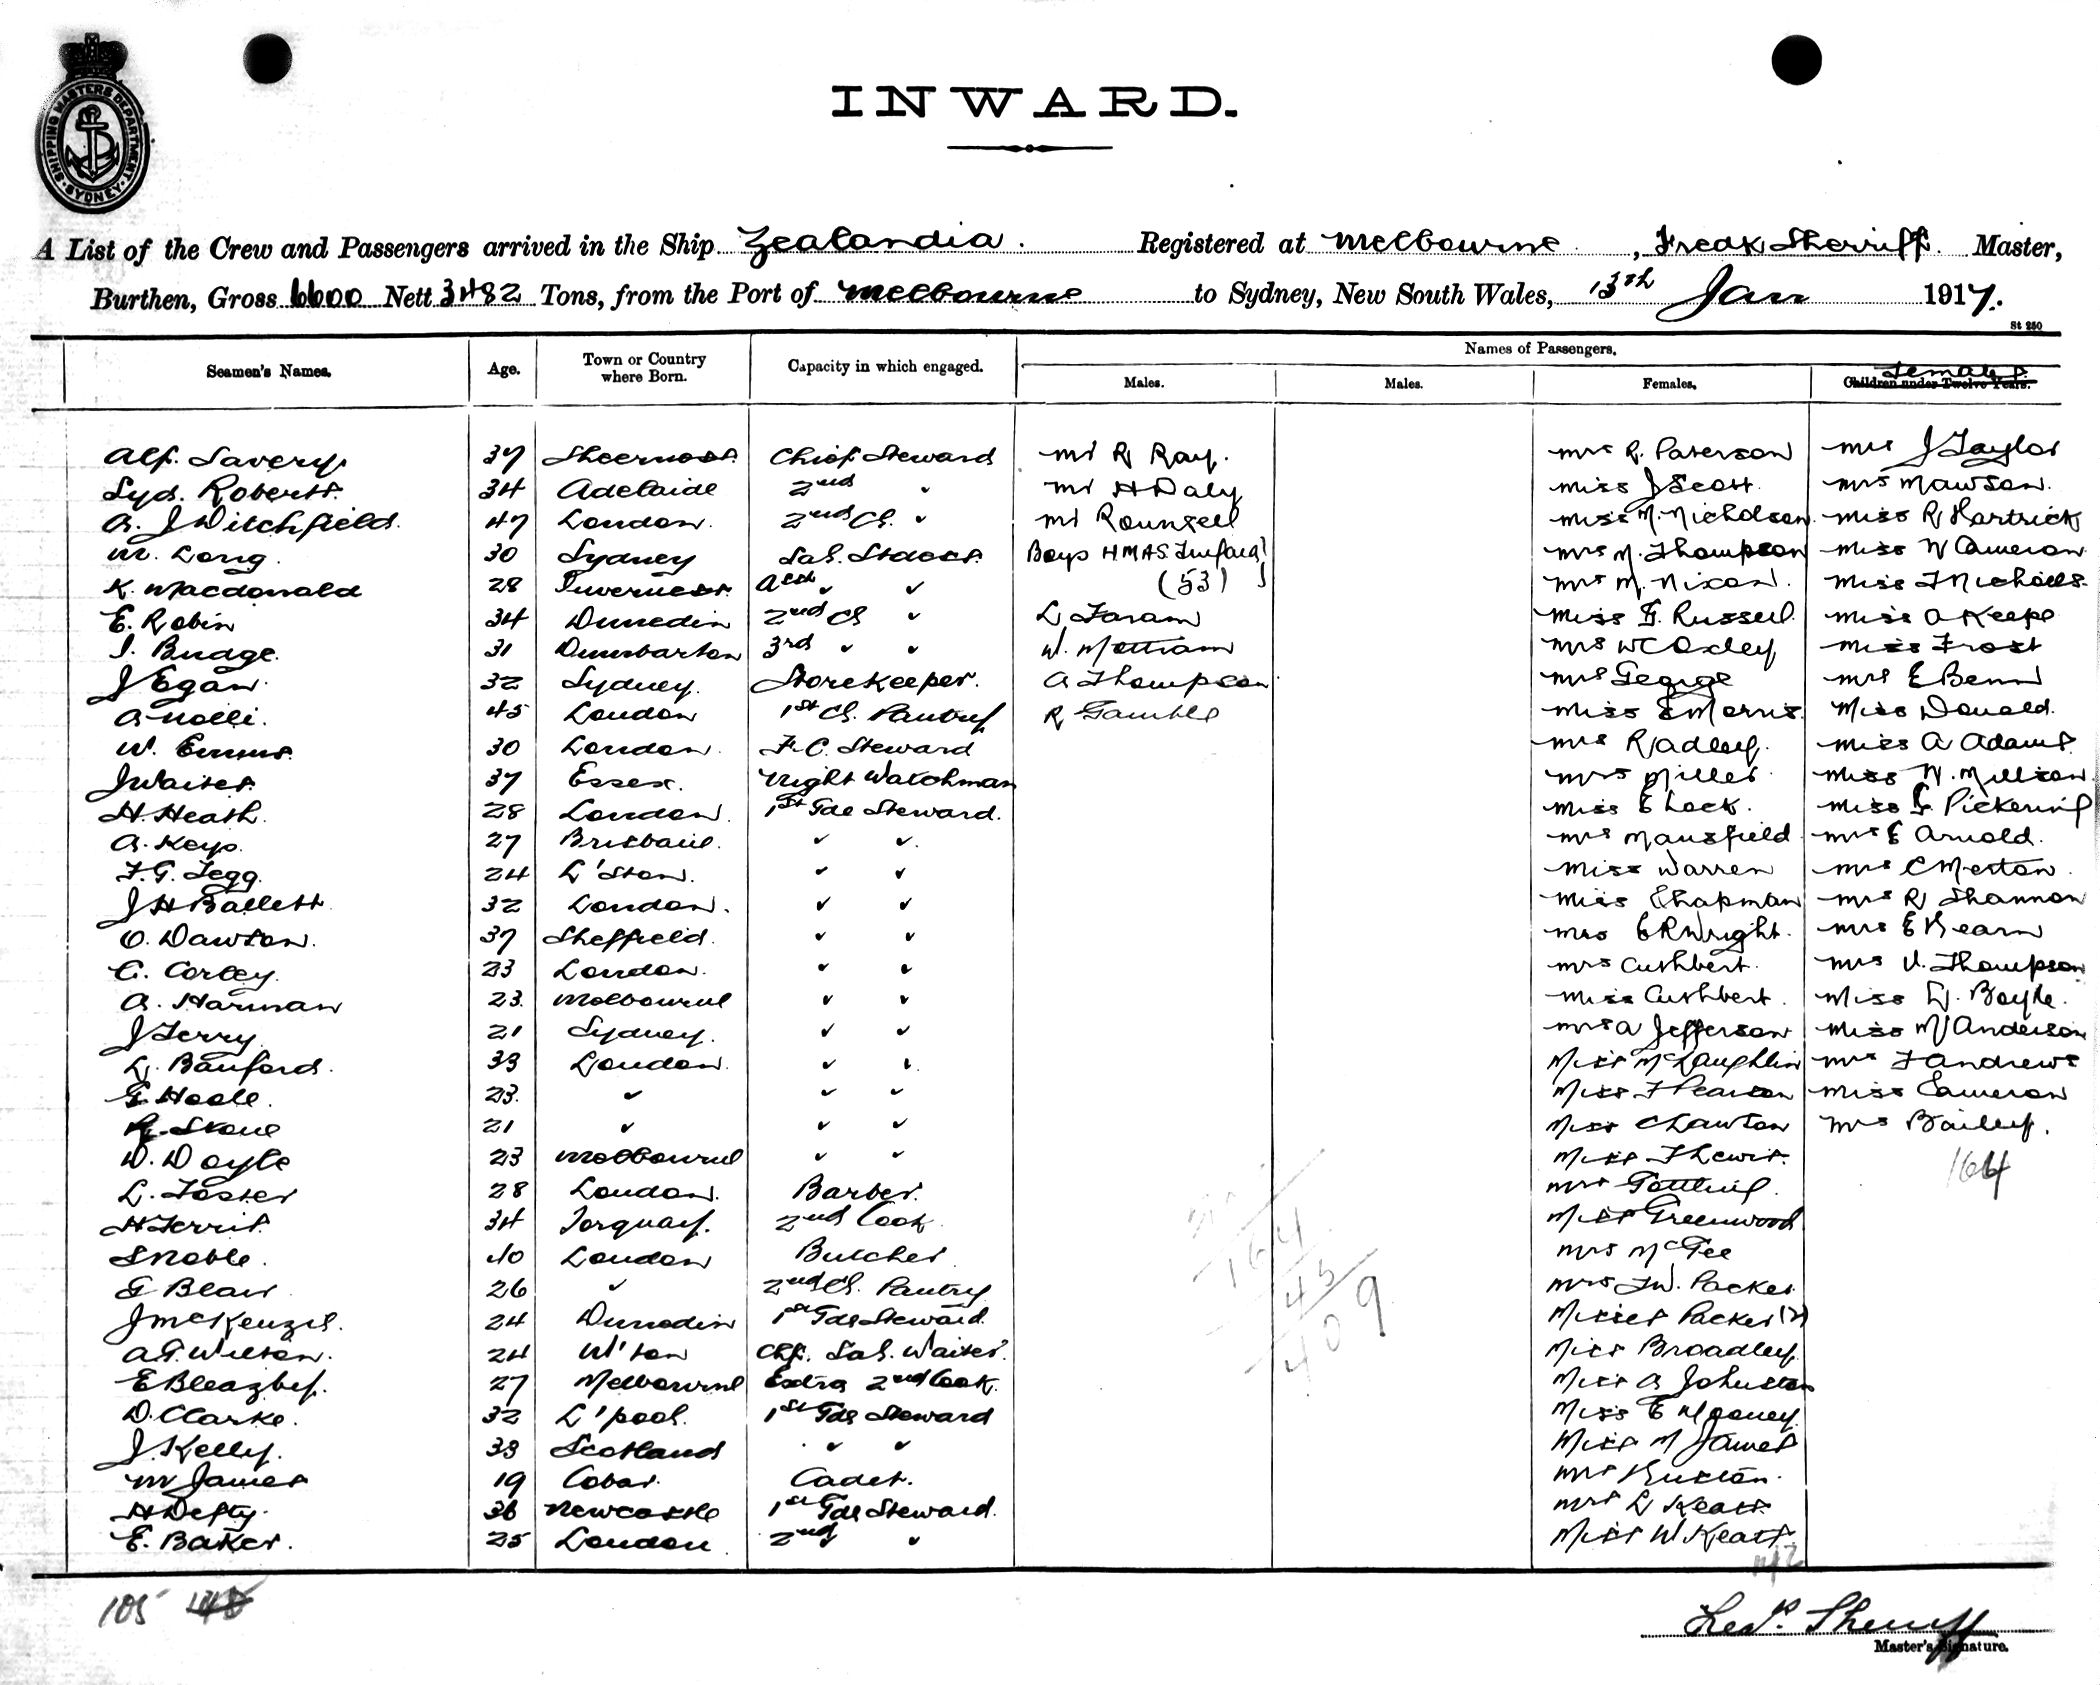 SHIPPING MASTERS DEPARTMENT. SYDNEY
INWARD.
A List of the Crew and Passengers arrived in the Ship Zealandia. Registered at Melbourne, Fredk Sherriff. Master,
Burthen, Gross 6600 Nett 3482 Tons, from the Port of Melbourne to Sydney, New South Wales, 13th Jan 1917.
St 250
Seamen's Names. Age. Town or Country where Born. Capacity in which engaged. Names of Passengers.
Males. Males. Females. Children under Twelve Years. Females.
Alf. Savery. 37 Sheerness. Chief Steward Mr R Ray. Mrs R. Paterson Mrs J Taylor
Syd. Roberts. 34 Adelaide 2nd " Mr H Daly Miss J Scott. Mrs Mawson.
A. J Ditchfield. 47 London. 2nd Cl. " Mr Rounsell Miss M. Nicholson Miss R Hartrick
M. Long. 30 Sydney Boys H.M.A.S. (53) Mrs M. Thompson Miss N Cameron
K. Macdonald 28 Inverness. " " Mrs M. Nixon. Miss F Nicholls.
E. Robin 34 Dunedin 2nd Cl " L Faram Miss F. Russell. Miss A Keepe
J. Budge. 31 Dumbarton 3rd " " W. Mottram Mrs W C Oxley Miss Frost
J Egan. 32 Sydney. Storekeeper. A Thompson Mrs George Mrs E Benn
A Nolli. 45 London 1st Cl. Pantry R Gamble Miss S Morris. Miss Donald.
W. Emms. 30 London. F.C. Steward Mrs Radley. Miss A Adams
J Waites. 37 Essex. Night Watchman Mrs Miller. Miss N. Millson.
H. Heath. 28 London. 1st Gde Steward. Miss E Lock. Miss G Pickering
A. Keys. 27 Brisbane. " " Mrs Mansfield Mrs E Arnold.
F. G. Tegg. 24 L'Ston. " " Miss Warren Mrs C Merton.
J H Ballett 32 London. " " Miss Chapman Mrs R Shannon
O. Dawson. 37 Sheffield. " " Mrs E R Wright. Mrs E Hearn
C. Corley. 23 London. " " Mrs Cuthbert. Mrs V. Thompson
A. Harman 23. Melbourne " " Miss Cuthbert. Miss L. Boyle.
J Terry. 21 Sydney. " " Mrs A Jefferson Miss M Anderson
L. Banford. 33 London. " " Miss McLaughlin Mrs F Andrews
G Hoole. 23. " " " Miss F Pearson Miss Cameron
R. Stone 21 " " " Miss C Lawton Mrs Bailey.
D. Doyle 23 Melbourne " " Miss F Lewis.
L. Foster 28 London. Barber. Mrs 164
H Ferris. 34 Torquay. 2nd Cook. Miss Greenwood
S Noble. 40 London Butcher Mrs McGee
G Blair 26 " 2nd Cl. Pantry Mrs F W. Packer
J McKenzie. 24 Dunedin 1st Gde Steward. Misses Packer (2)
A. G. Wilson. 24 W'ton Chf. Sal. Waiter. Miss Broadley.
E Bleazby. 27 Melbourne Extra 2nd Cook. Miss A Johnston
D. Clarke. 32 L'pool. 1st Gde Steward Miss E Mooney.
J. Kelly. 33 Scotland " " Miss M James
M James 19 Cobar. Cadet. Mrs Buxton.
H Defty. 36 Newcastle 1st Gde Steward. Mrs L Keats
E. Baker. 25 London 2nd " Miss W Keats.
164
45
409
105
Fredk. Sherriff
Master's Signature.